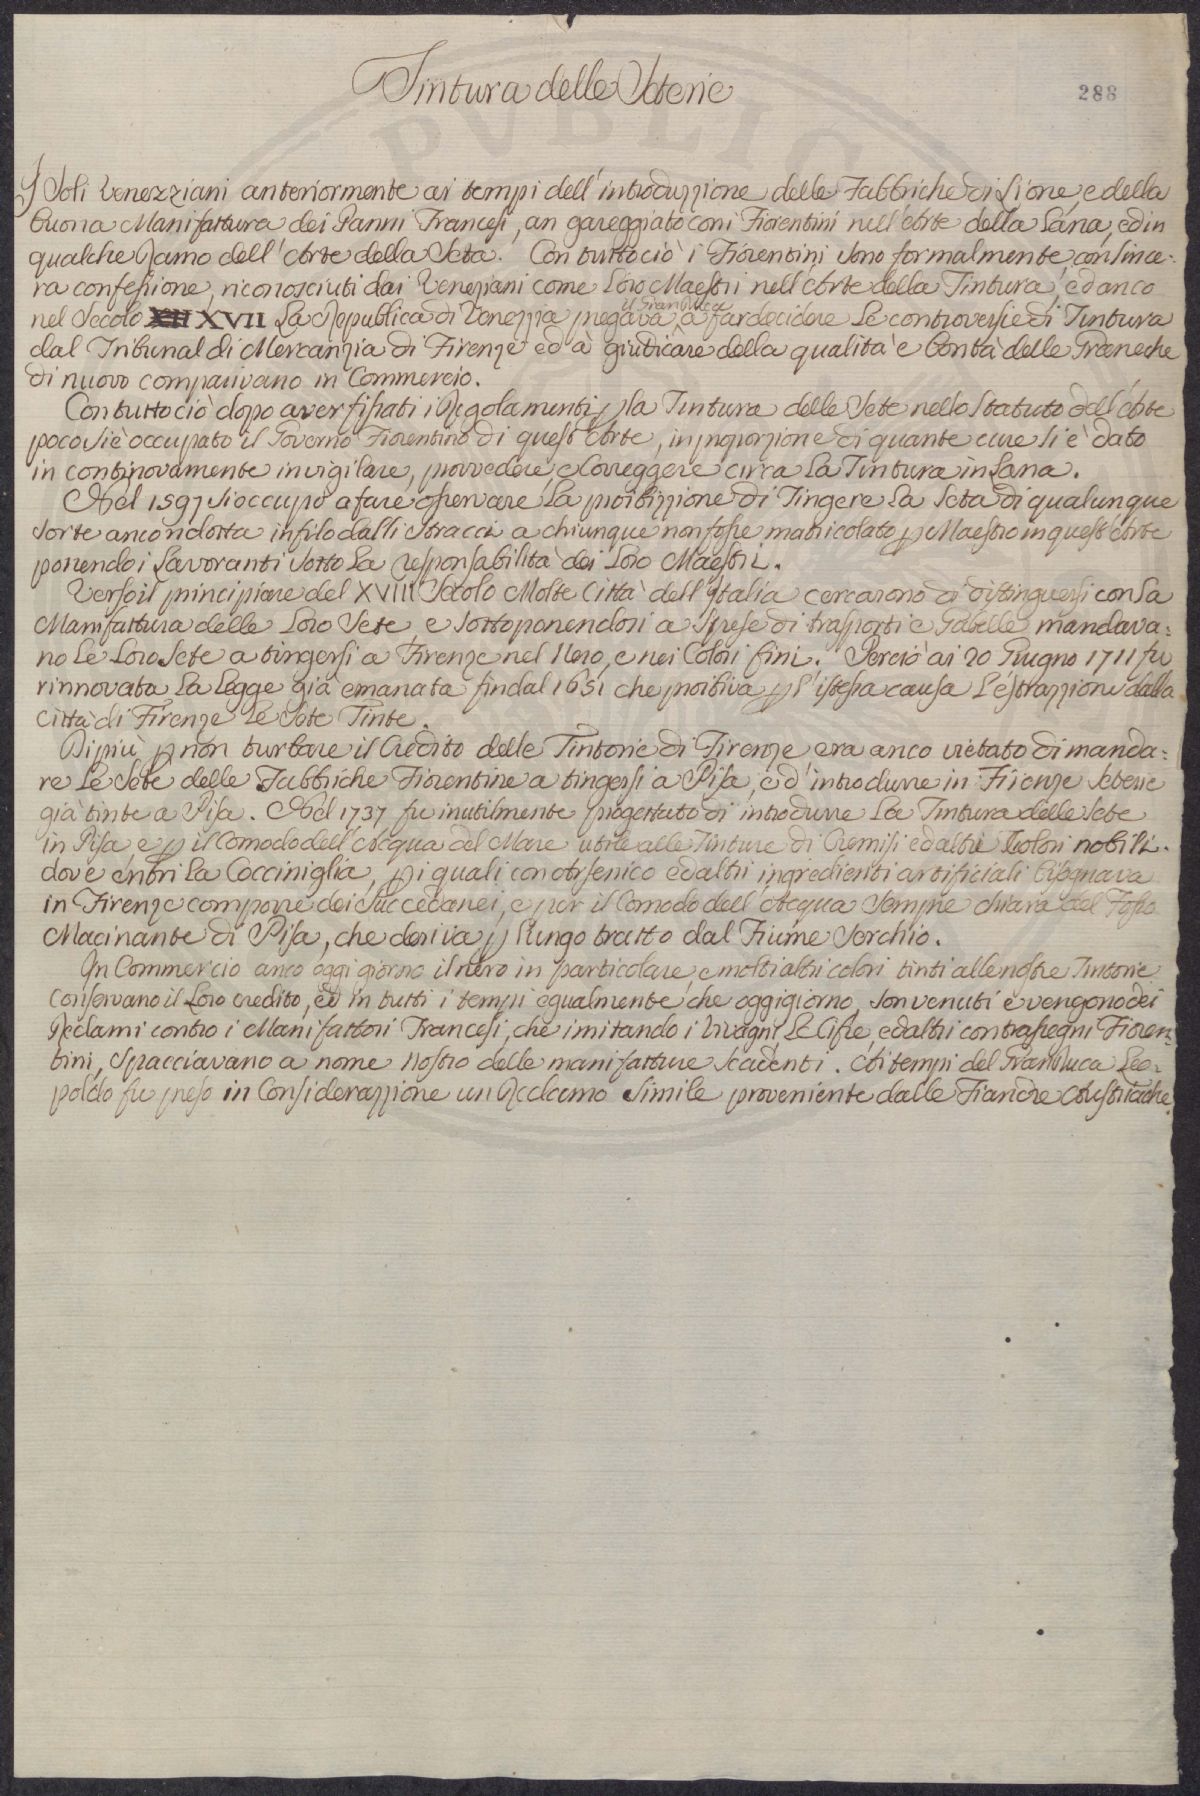 Tintura delle Seterie
288
I Soli Venezziani anteriormente ai tempi dell'introduzzione delle Fabbriche di Lione, e della
buona Manifattura dei Panni Francesi, an gareggiato con i Fiorentini nell'Arte della Lana, ed in
qualche Ramo dell'Arte della Seta. Con tutto ciò i Fiorentini sono formalmente, con since-
ra confessione, riconosciuti dai Veneziani come Loro Maestri nell'Arte della Tintura, ed anco
nel Secolo XVII La Republica di Venezzia pregava il Granduca a far decidere Le controversie di Tintura
dal Tribunal di Mercanzia di Firenze ed a giudicare della qualità e bontà delle Grane che
di nuovo comparivano in Commercio.
Con tutto ciò dopo aver fissati i Regolamenti p la Tintura delle Sete nello Statuto dell'Arte
poco si è occupato il Governo Fiorentino di quest'Arte, in proporzione di quante cure si è dato
in continovamente invigilare, provvedere, e Correggere circa La Tintura in Lana.
Nel 1597 si occupò a fare osservare La proibizzione di Tingere La Seta di qualunque
sorte anco ridotta in filo dalli Stracci a chiunque non fosse matricolato p Maestro in quest'Arte
ponendo i Lavoranti sotto La responsabilità dei Loro Maestri.
Verso il principiare del XVIII Secolo Molte Città dell'Italia cercarono di distinguersi con La
Manifattura delle Loro Sete e sottoponendosi a Spese di trasporti e Gabelle mandava-
no Le Loro Sete a tingersi a Firenze nel Nero, e nei Colori fini. Perciò ai 20 Giugno 1711 fu
rinnovata La Legge già emanata fin dal 1651 che proibiva p l'istessa causa L'estrazzione dalla
Città di Firenze Le Sete Tinte.
Di più p non turbare il Credito delle Tintorie di Firenze era anco vietato di manda-
re Le Sete delle Fabbriche Fiorentine a tingersi a Pisa, e d'introdurre in Firenze Seterie
già tinte a Pisa. Nel 1737 fu inutilmente progettato di introdurre La Tintura delle Sete
in Pisa e p il Comodo dell'Acqua del Mare utile alle Tinture di Cremisi ed altri Colori nobili.
dove entri La Cocciniglia, p i quali con Arsenico ed altri ingredienti artificiali bisognava
in Firenze comporre dei Succedanei, e per il Comodo dell'Acqua Sempre chiara del Fosso
Macinante di Pisa, che deriva p lungo tratto dal Fiume Serchio.
In Commercio anco oggi giorno il nero in particolare, e molti altri colori tinti alle nostre Tintorie
Conservano il Loro credito, ed in tutti i tempi egualmente che oggi giorno, son venuti e vengono dei
Reclami contro i Manifattori Francesi, che imitando i Vivagni, Le Cifre, ed altri contrassegni Fioren-
tini, Spacciavano a nome nostro delle manifatture scadenti. Ai tempi del Granduca Leo-
poldo fu preso in Considerazzione un Reclamo simile proveniente dalle Fiandre Austriache.